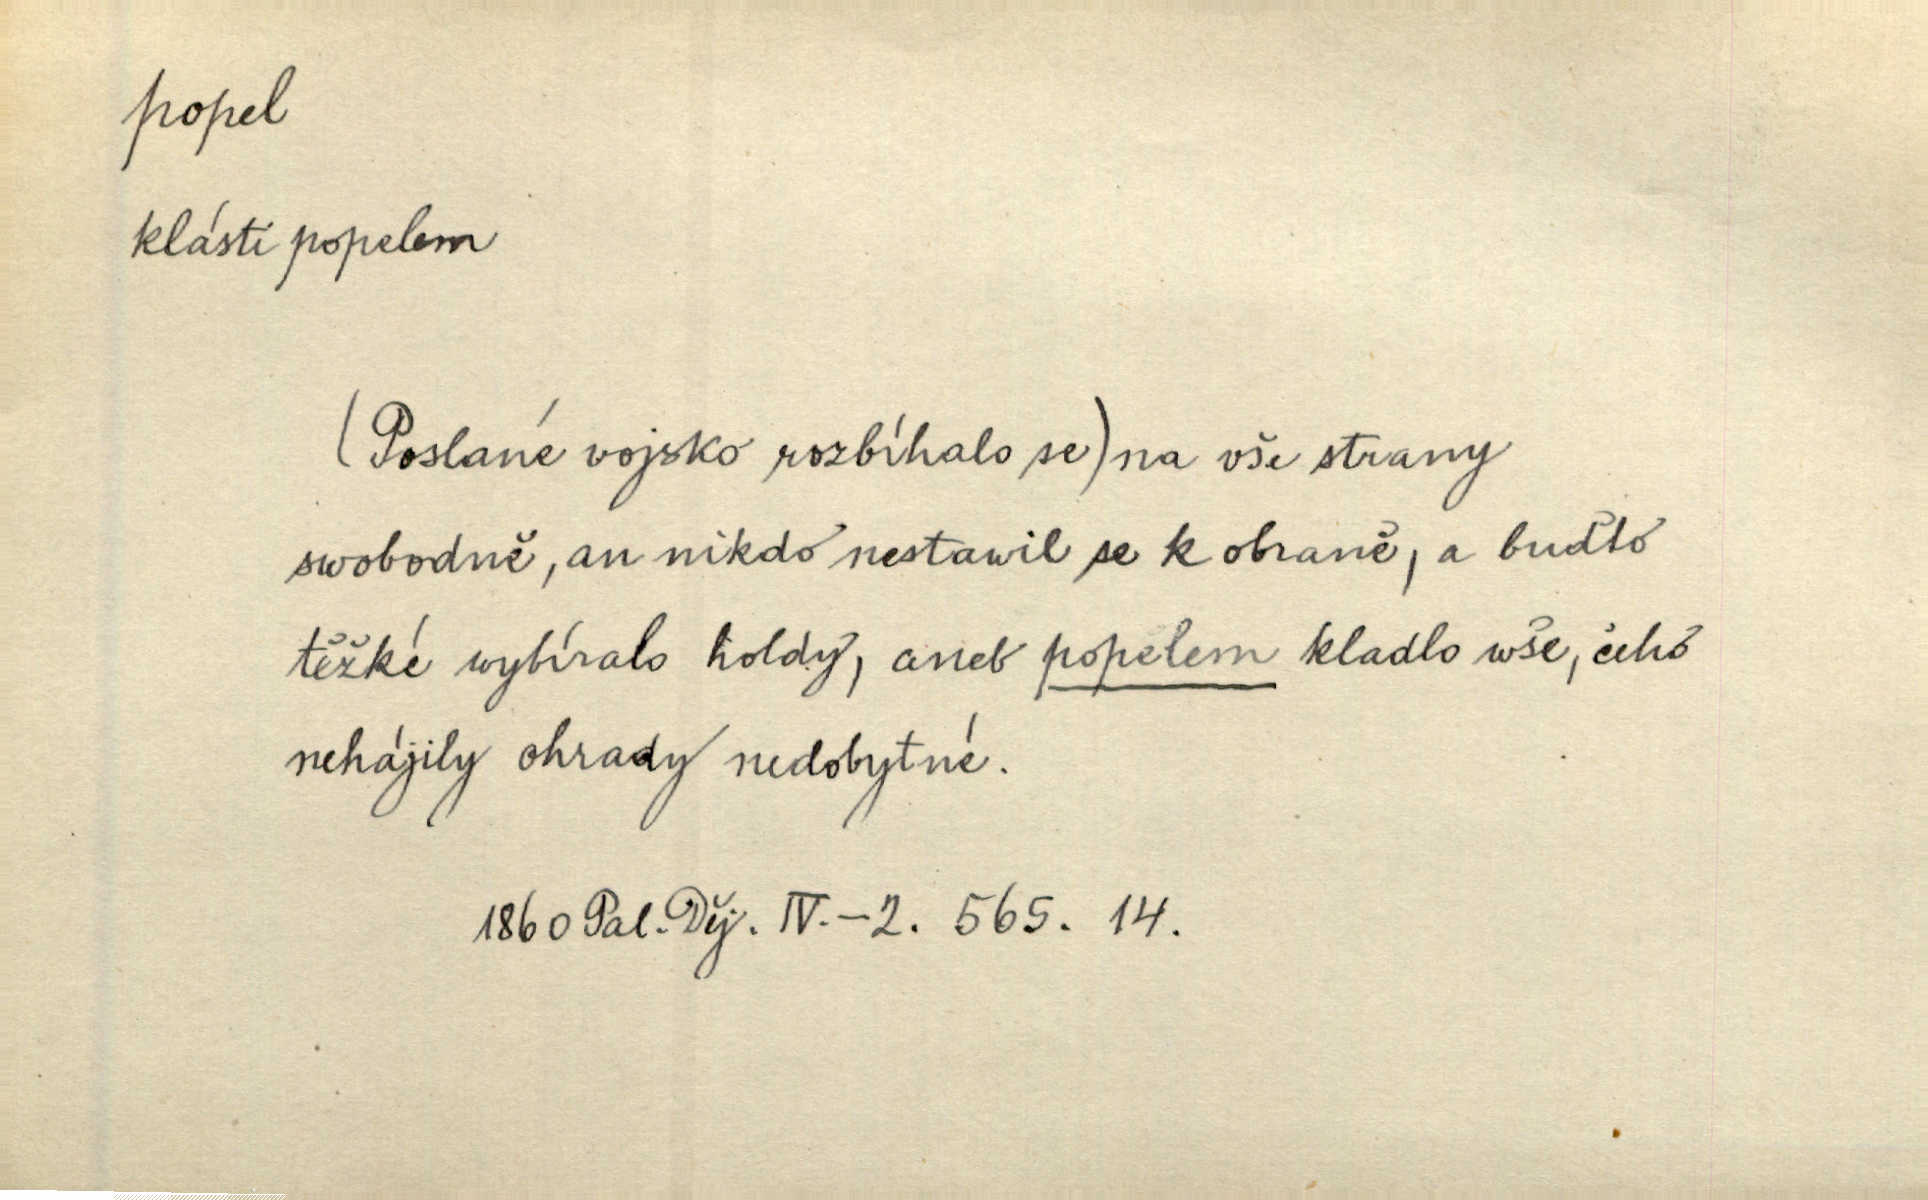 popel
klásti popelem
(Poslané vojsko rozbíhalo se) na vše strany
swobodně, an nikdo nestawil se k obraně, a buďto
těžké wybíralo holdy, aneb popelem kladlo wše, čeho
nehájily ohrady nedobytné.
1860 Pal. Děj. IV.-2. 565. 14.